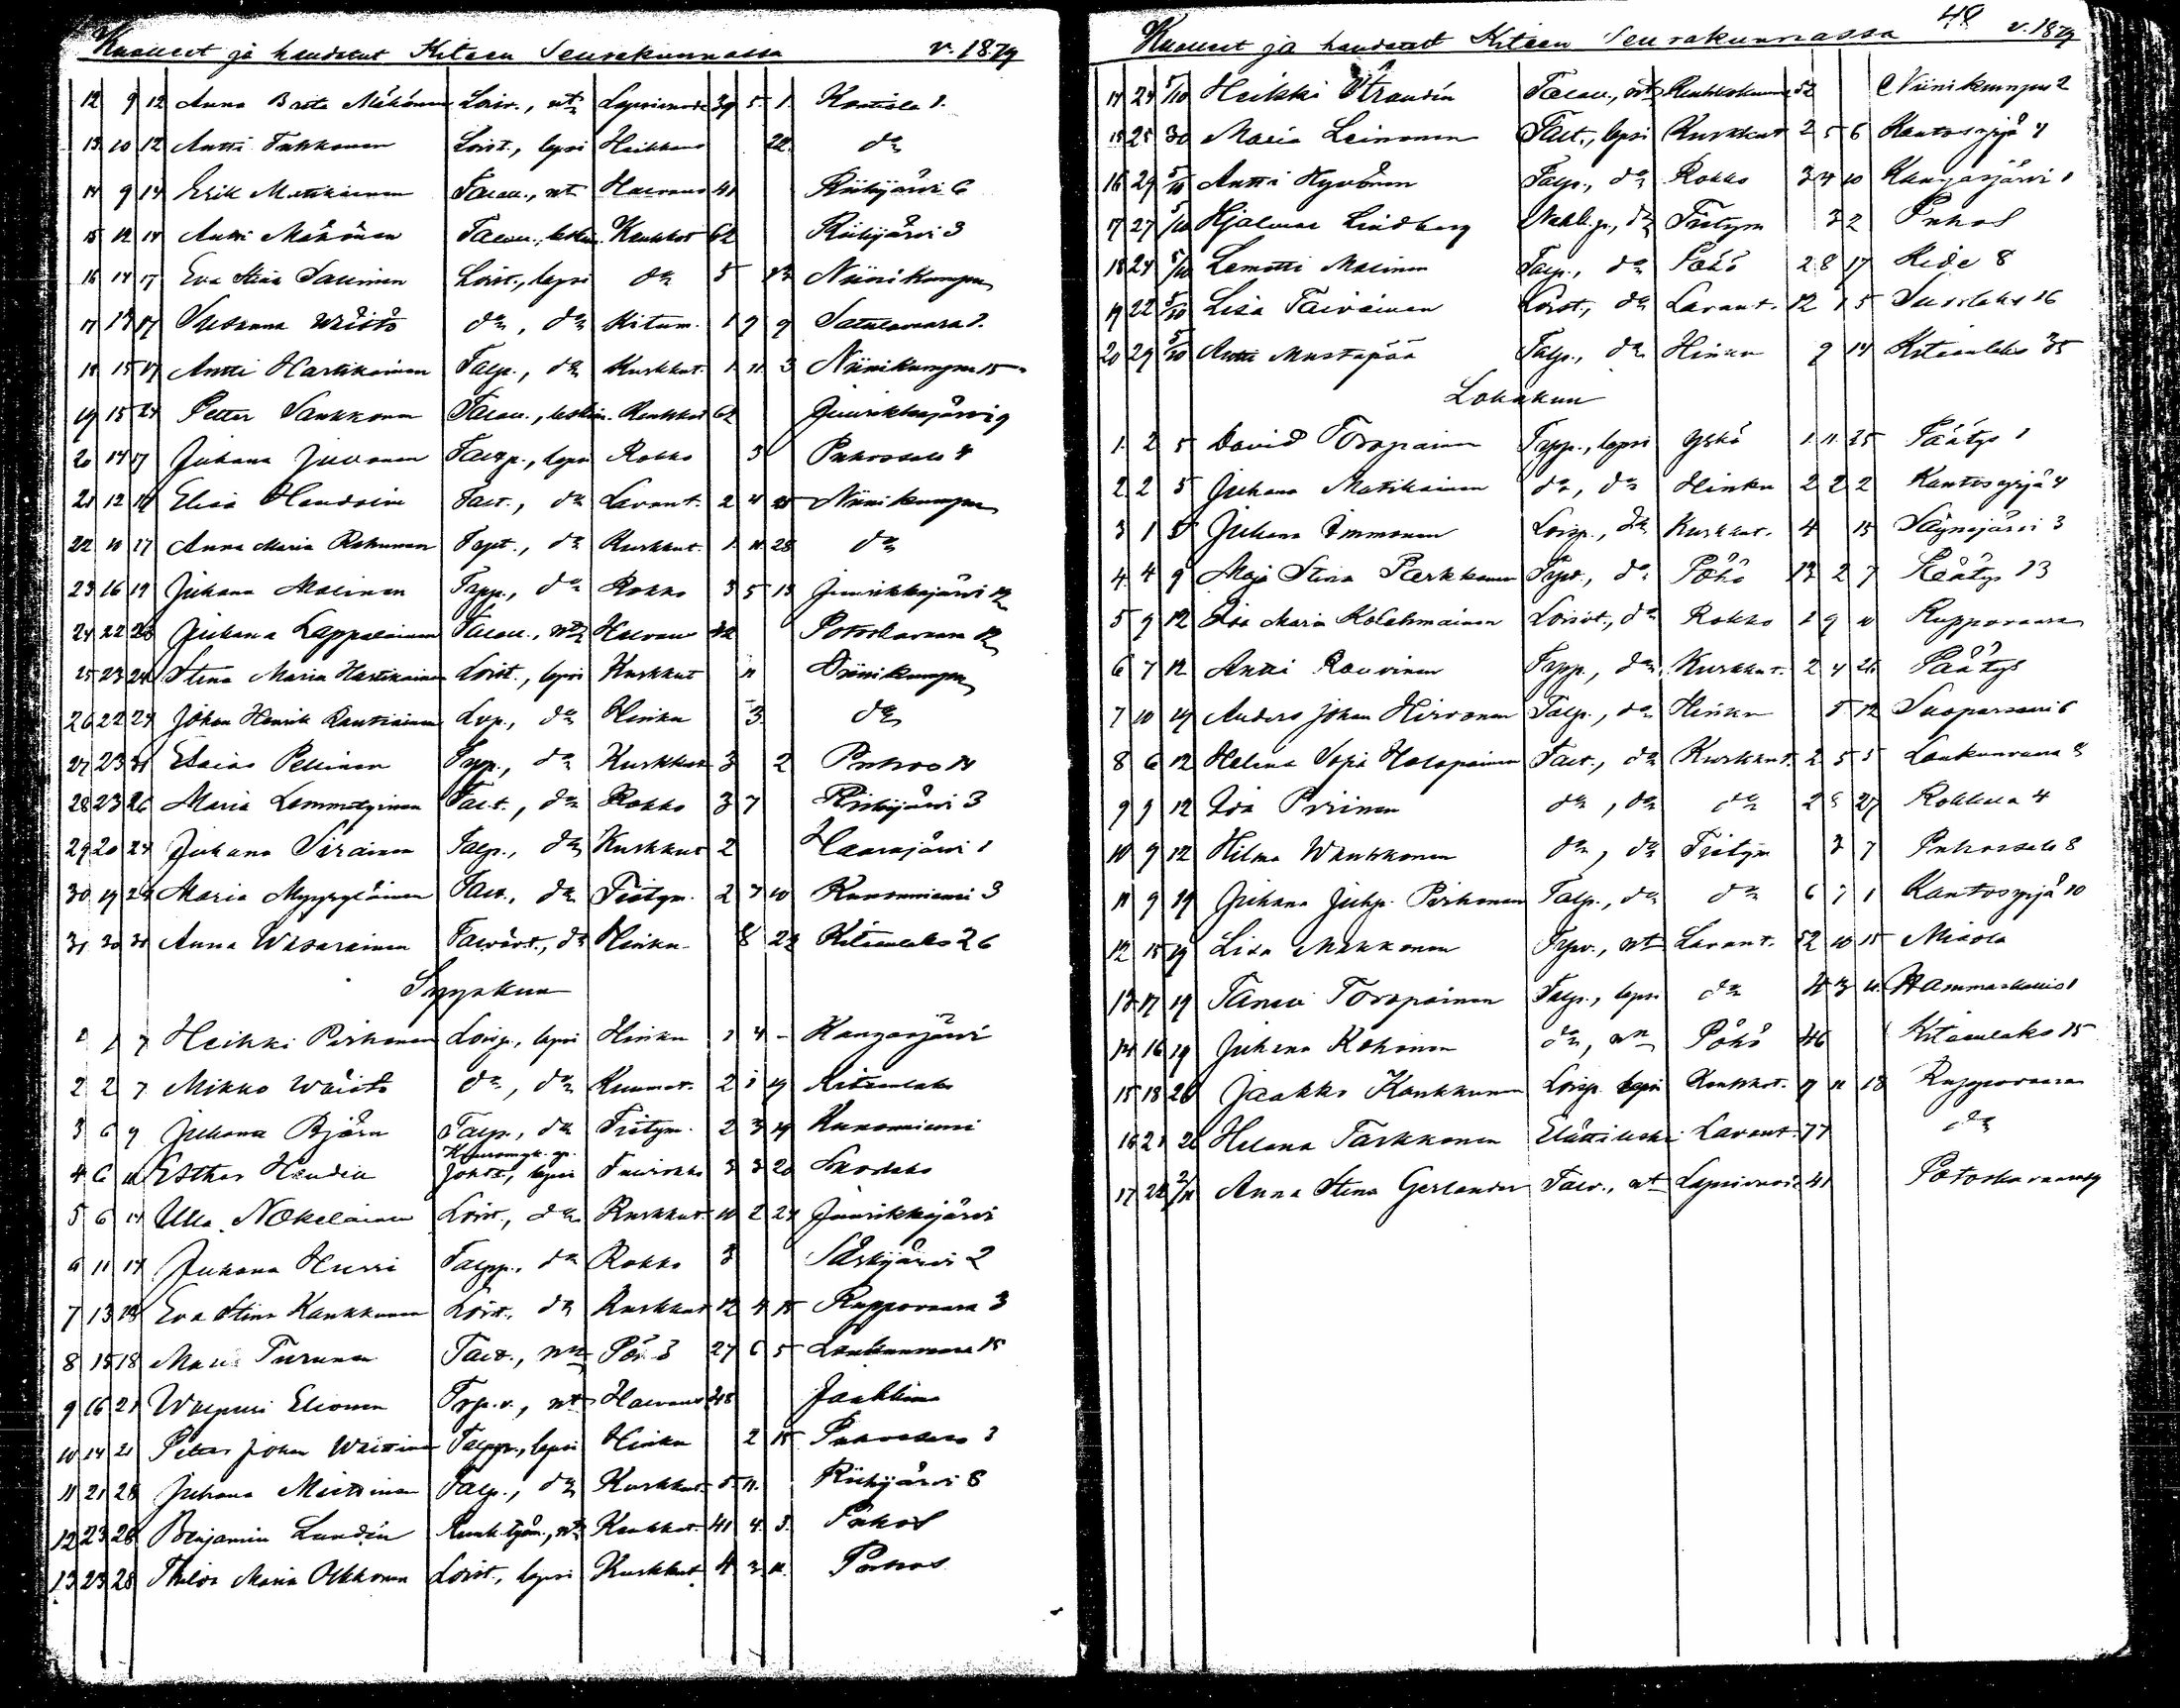 Kuolleet ja haudatut Kiteen Seurakunnassa v. 1879
12 9 12 Anna Brita Mähönen Loisv., nt Lapsivuode 39 5 1 Kontiola 1.
13 10 12 Antti Tukkonen Loist., lapsi Heikkous 22 do
14 9 14 Erik Matikainen Talon., nt Halvaus 41 Riihijärvi 6
15 12 14 Antti Mähönen Talon., leskim. Keuhkot 62 Riihijärvi 3
16 14 17 Eva Stina Sallinen Loist., lapsi do 5 13 Niinikumpu
17 13 17 Susanna Wäistö do, do Kitum. 1 9 9 Satulavaara 7.
18 15 17 Antti Hartikainen Talp., do Kurkkut. 1 11 3 Niinikumpu 15
19 15 24 Petter Sankkonen Talon., leskim. Keuhkot 62 Juurikkajärvi 9
20 14 17 Juhana Juvonen Talp., lapsi Rokko 3 Puhossalo 4
21 12 18 Elisa Handolin Talt., do Lavant. 2 4 25 Niinikumpu
22 10 17 Anna Maria Rahunen Typt., do Kurkkut. 1 11 28 do
23 16 19 Juhana Malinen Typp., do Rokko 3 5 13 Juurikkajärvi 12
24 22 26 Juhana Lappalainen Talon., nt Halvaus 42 Potoskavaara 12
25 23 24 Stina Maria Hartikainen Loist., lapsi Kurkkut 11 Niinikumpu
26 22 24 Johan Henrik Rautiainen Lvp., do Hinku 3 do
27 23 31 Esaias Pellinen Typp., do Kurkkut 3 2 Puhos 14
28 23 26 Maria Lemmetyinen Talt., do Rokko 3 7 Riihijärvi 3
29 20 24 Juhana Sirainen Talp., do Kurkkut 2 Haarajärvi 1
30 19 24 Maria Myyryläinen Talt., do Tistym. 2 7 10 Kunonniemi 3
31 30 31 Anna Wäsäräinen Talvävt., do Hinku 8 22 Kiteenlaks 26
Syyskuu
1 1 7 Heikki Pirhonen Loisp., lapsi Hinku 1 4 - Kangasjärvi
2 2 7 Mikko Wäistö do, do Kuumet. 2 1 19 Kiteenlaks
3 6 9 Juhana Björn Talp., do Tistym. 2 3 14 Kunonniemi
4 6 14 Esther Handin Johtt., lapsi Tuhrokko 3 3 20 Suorlaks
5 6 14 Ulla Nokelainen Loist., do Kurkkut. 10 2 24 Juurikkajärvi
6 11 14 Juhana Hurri Talpp., do Rokko 3 Särkijärvi 2
7 13 18 Eva Stina Kankkunen Loist., do Kurkkut 12 4 15 Ruppovaara 3
8 15 18 Maria Turunen Talt., nn Pöhö 27 6 5 Loukunvaara 15
9 16 21 Walpuri Elionen Typ.v., nt Halvaus 48 Jaakkima
10 14 21 Petter Johan Wäistinen Talpp., lapsi Hinku 2 15 Puhossalo 3
11 21 28 Juhana Miettinen Talp., do Kurkkut. 5 11. Riihijärvi 8
12 23 28 Benjamin Lundin Ruuktyöm., nt Keuhkot. 41 4 3. Puhos
13 23 28 Hilda Maria Olkkonen Loist., lapsi Kurkkut 4 3 11. Puhos
Kuolleet ja haudatut Kiteen Seurakunnassa 48 v. 1879
14 24 5/10 Heikki Strandin Talon., nt Keuhkokuume 52 Niinikumpu 2
15 25 30 Maria Leinonen Talt., lapsi Kurkkut 2 5 6 Kantosyrjä 4
16 29 5/10 Antti Hyvönen Talp., do Rokko 3 4 10 Kangasjärvi 1
17 27 5/10 Hjalmar Lindberg Nahk.p., do Tistym 3 2 Puhos
18 24 5/10 Lemetti Malinen Talp., do Pöhö 2 8 17 Kide 8
19 22 5/10 Lisa Taivainen Loist., do Lavant. 12 1 5 Suorlaks 16
20 29 5/10 Antti Mustapää Talp., do Hinku 9 14 Kiteenlaks 35
Lokakuu
1. 2 5 David Toropainen Typp., lapsi Yskä 1 11 25 Päätye 1
2 2 5 Juhana Matikainen do, do Hinku 2 2 2 Kantosyrjä 4
3 1 5 Juhana Immonen Loisp., do Kurkkut. 4 15 Säynejärvi 3
4 4 9 Maja Stina Parkkonen Typt., do Pöhö 13 2 7 Päätye 13
5 9 12 Ida Maria Kolehmainen Loist., do Rokko 1 9 11 Ruppovaara
6 7 12 Antti Rouvinen Typp., do Kurkkut. 2 4 26 Päätye
7 10 19 Anders Johan Hirvonen Talp., do Hinku 5 12 Suoparsaari 6
8 6 12 Helena Sofia Holopainen Talt., do Kurkkut. 2 5 5 Loukunvaara 3
9 9 12 Ida Piirinen do, do do 2 8 27 Rokkala 4
10 9 12 Hilma Wänskönen do, do Tistym 3 7 Puhossalo 8
11 9 19 Juhana Juhp. Pirhonen Talp., do do 6 7 1 Kantosyrjä 10
12 15 19 Lisa Makkonen Typv., nt Lavant. 52 10 15 Misola
13 17 19 Taneli Toropainen Talp., lapsi do 4 3 11. Hammaskallio 1
14 16 19 Juhana Kohonen do, nn Pöhö 46 Kiteenlaks 15
15 18 26 Jaakko Kankkunen Loisp. lapsi Keuhkot. 9 11 18 Ruppovaara
16 21 26 Helena Tarkkonen Elättileski Lavant. 77 do
17 22 2/11 Anna Stina Gerlander Talv., nt Lapsivuode 41 Potoskavaara